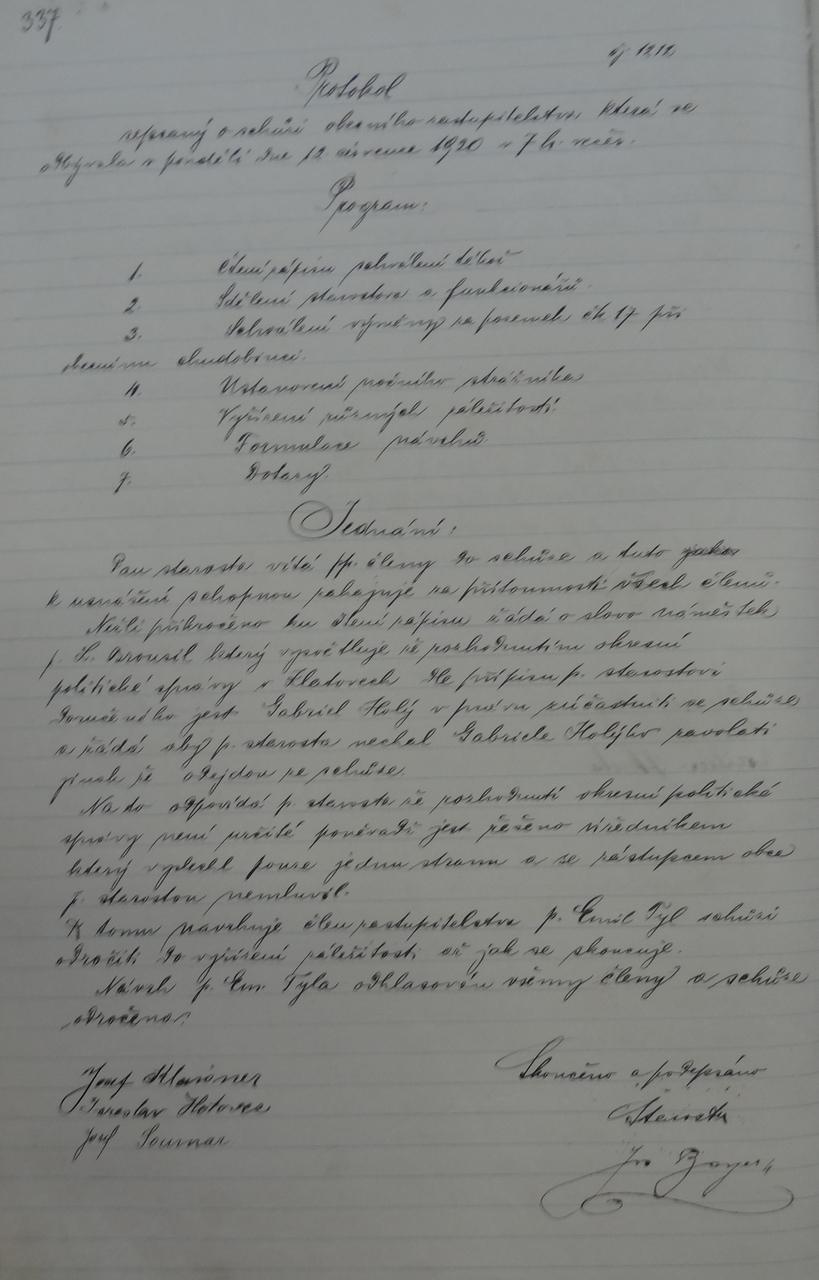 337.
čj 1212
Protokol
sepsaný o schůzi obecního zastupitelstva která se
odbývala v pondělí dne 12 července 1920 v 7 h. večer.
Program:
1. Čtení zápisu schválení téhož
2. Sdělení starostova a funkcionářů.
3. Schválení výměny za pozemek čk 17 při
obecnímu chudobinci.
4. Ustanovení nočního strážníka
5. Vyřízení různých záležitostí.
6. Formulace návrhů.
7. Dotazy.
Jednání:
Pan starosta vítá pp. členy do schůze a tuto jako
k usnášení schopnou zahajuje za přítomnosti všech členů.
Nežli přikročeno ku čtení zápisu žádá o slovo náměstek
p. Brousil který vysvětluje že rozhodnutím okresní
politické správy v Klatovech dle přípisu p. starostovi
doručeného jest Gabriel Holý v právu zúčastniti se schůze
a žádá aby p. starosta nechal Gabriele Holýho zavolati
jinak že odejdou ze schůze.
Na to odpovídá p. starosta že rozhodnutí okresní politické
správy není určité poněvadž jest řešeno úředníkem
který vyslechl pouze jednu stranu a se zástupcem obce
p. starostou nemluvil.
K tomu navrhuje člen zastupitelstva p. Emil Tyl schůzi
odročiti do vyřízení záležitosti až jak se skoncuje.
Návrh p. Em. Tyla odhlasován všemy členy a schůze
odročena.
Skončeno a podepsáno
Starosta
Josef
Jaroslav
Josef Soumar